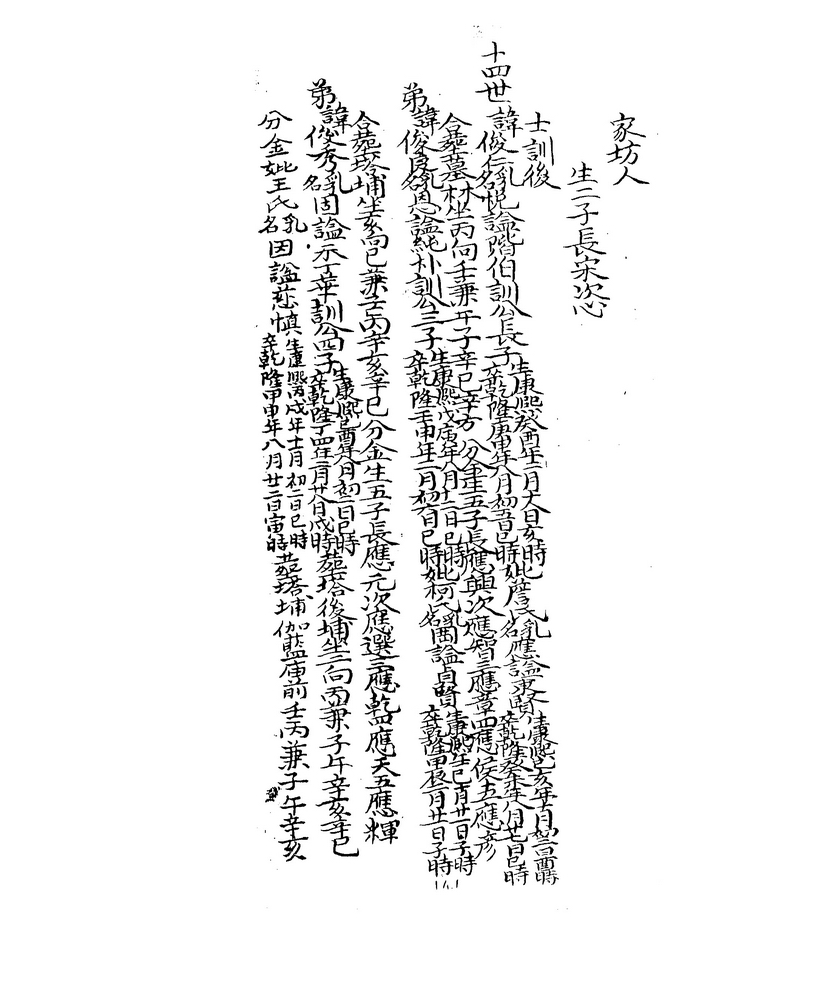 家坊人
生二子長宋次忩
士訓後
十四世諱俊仁乳名悅諡階伯訓公長子生康熙癸酉年二月大日亥時卒乾隆庚申年八月初五日巳時妣詹氏乳名應諡東賢生康熙乙亥年十月初二日酉時卒乾隆癸未年八月廿七日巳時
合葬墓林坐丙向壬兼午子辛巳辛方分建五子長應興次應智三應章四應侯五應彥
弟諱俊良乳名恩諡純朴訓公三子生康熙戊寅年八月十二日巳時卒乾隆壬申年二月初六日巳時妣柯氏乳名圊諡貞賢生康熙辛巳年二月廿一日子時卒乾隆甲辰年二月廿一日子時
合葬塔埔坐亥向巳兼壬丙辛亥辛巳分金生五子長應元次應選三應乾四應天五應輝
弟諱俊秀乳名因諡示丁章訓公四子生康熙己酉年八月初一日巳時卒乾隆丁四年二月廿八日戌時葬塔後埔坐壬向丙兼子午辛亥辛巳
分金妣王氏乳名因諡慈慎生康熙丙戌年十二月初二日巳時卒乾隆甲申年八月廿二日寅時葬塔埔伽藍庙前壬丙兼子午辛亥